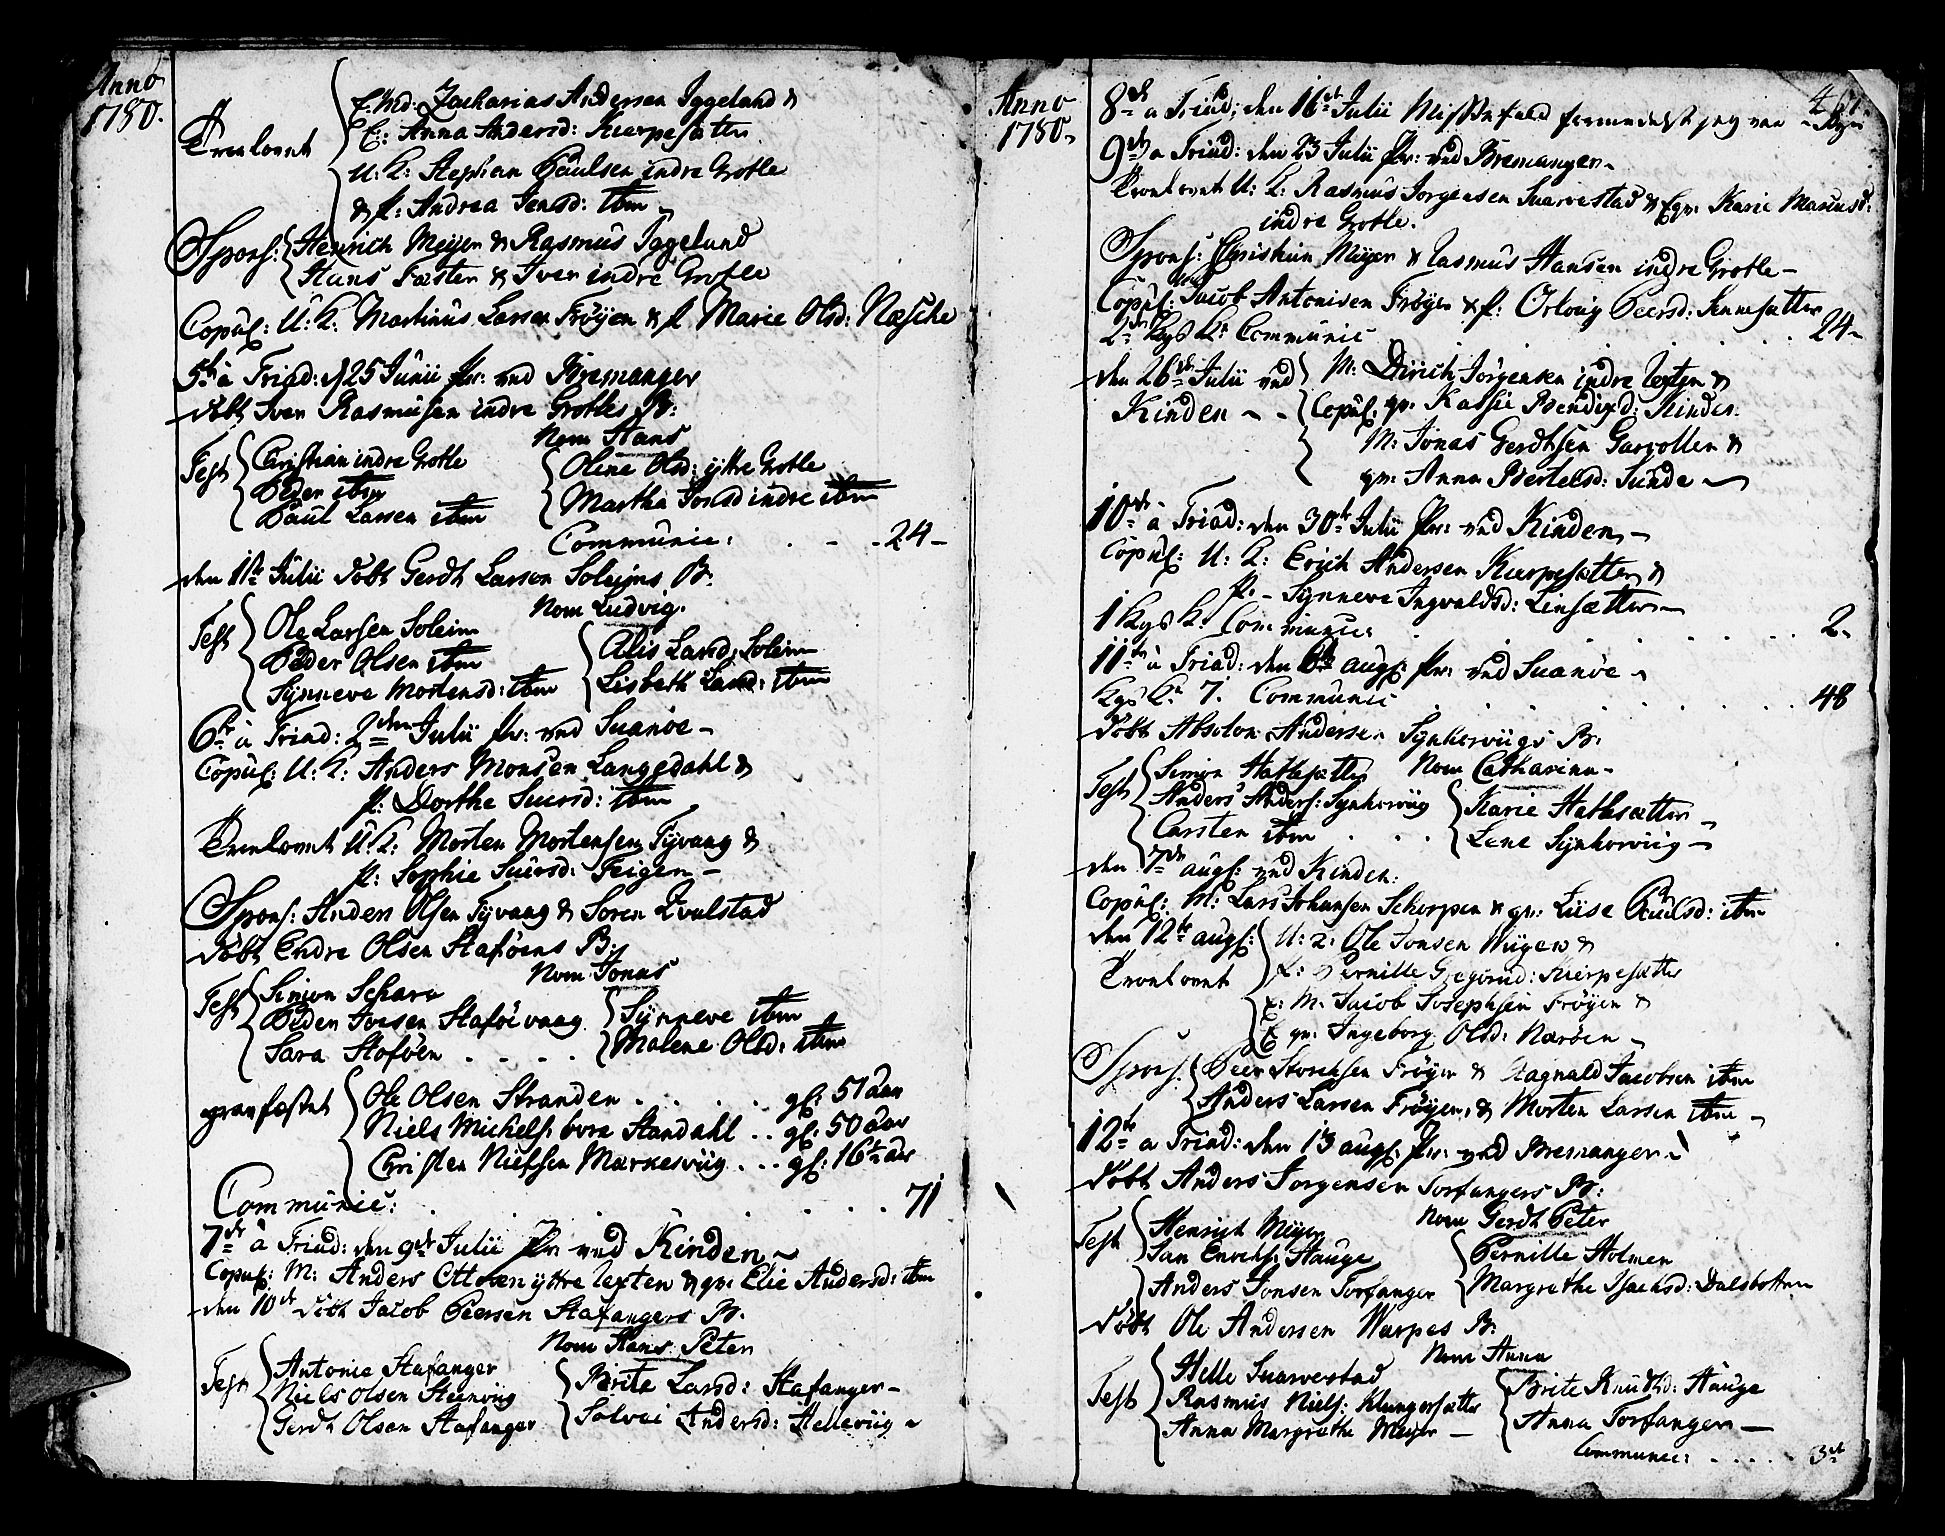 Anno
1780.
E: Md: Zacharias Andersen Iggeland &
E: Anna Andersd: Kierpesætter
Trolovet
U: K: Stephan Paulsen indre Grotle
& P: Andrea Jensd: ibm
Spons: Henrich Meyer & Rasmus Iggeland
Hans Fæster & Iver indre Grotle
Copul: U: K: Martinus Larsen Frøyen & P Marie Olsd: Næsche
5te à Trind: d 25 Junii Pr: ved Bremanger
døbt Iver Rasmusen indre Grotles B:
Nom Hans
Test Christian indre Grotle
Peder ibm
Paul Larsen ibm
Olene Olsd: yttre Grotle
Martha Jonsd indre ibm
Communic: 24
den 11te Julii døbt Gerdt Larsen Soleims B:
Nom Ludvig.
Test Ole Larsen Soleim
Peder Olsen ibm
Synneve Mortensd: ibm
Alis Larsd, Soleim
Lisbeth Larsd: ibm
6te à Trind: 2den Julii Pr: ved Suanöe
Copul: U: K: Anders Monsen Langedahl &
P: Dorthe Siursd: ibm
Trolovet U: K: Morten Mortensen Tyvaag &
P: Sophie Siursd: Feigen
Spons: Anders Olsen Tyvaag & Soren Qvalstad
døbt Endre Olsen Staføens B:
Nom Jonas
Test Simon Schare
Peder Ivesen Staføevaag
Sara Stoføen
Synneve ibm
Malene Olsd: ibm
graufæstet Ole Olsen Stranden gl: 51 aar
Niels Michels: bora Standahl gl: 50 aar
Christen Nielsen Markesviig gl: 16 aar
Communic: 71
7de à Trind: den 9de Julii Pr: ved Kinden
Copul: M: Anders Ottosen yttre Leqten & gr: Elie Andersd: ibm
den 10de døbt Jacob Peersen Stafangers B.
Nom Hans Peter
Test Antonie Stafanger
Niels Olsen Steinviig
Gerdt Olsen Stafanger
Brite Larsd: Stafanger
Solvei Andersd: Helleviig
Anno
1780.
8de a Trind; den 16de Julii Messefald formedelst jeg var syg
9de a Trind: den 23 Julii Pr: ved Bremanger
Trolovet U: K: Rasmus Jorgensen Suarvestad & E gr: Karie Mariusd:
indre Grotle.
Spons: Christian Meyer & Rasmus Hansen indre Grotle
Copul: Jacob Antonisen Frøyen & P: Orloug Peersd: Sennesætter
Communic 24
den 26de Julii ved
Kinden
M: Dirich Jörgensen indre Leqten &
Copul: gr: Kassie Bendixd: Kinden
M: Jonas Gerdtsen Garvollen &
gr: Anna Bertelsd: Sunde
10de à Trind: den 30te Julii Pr: ved Kinden
Copul: U: K: Erich Andersen Kierpesætter &
P: Synneve Ingvaldsd: Linsætter
Communic 2
11te à Trind: den 6te augs: Pr: ved Suanöe
7. Communic 48
døbt Absolon Andersen Synkerviigs B:
Nom Catharina
Test Simon Hatlesætter
Anders Anders: Synkerviig
Carsten ibm
Karie Hatlesætter
Lene Synkerviig
den 7de augs: ved Kinden:
Copul: M: Lars Johansen Schorpen & gr: Liise Paulsd: ibm
den 12te augs:
Trolovet
U: K: Ole Jonsen Myren &
P: Pernille Gregorid: Kierpesætter
E: M: Jacob Josephsen Frøyen &
E gr: Ingeborg Olsd: Nærøen
Spons: Peer Storchsen Frøyen & Ragnald Jacobsen ibm
Anders Larsen Frøyen, & Morten Larsen ibm
12te a Trind: den 13 augs: Pr: ved Bremanger
døbt Anders Jorgensen Torfangers B:
Nom Gerdt Peter
Test Henrich Meyer
Jan Enochs: Hauge
Anders Jonsen Torfanger
Pernille Holmen
Margrethe Isachsd: Dalsbotten
døbt Ole Andersen Warpes B:
Nom Anna
Test Helle Suarvestad
Rasmus Niels: Klungersætter
Anna Margrethe Meyer
Brite Knudsd: Hauge
Anna Torfanger
Communic: